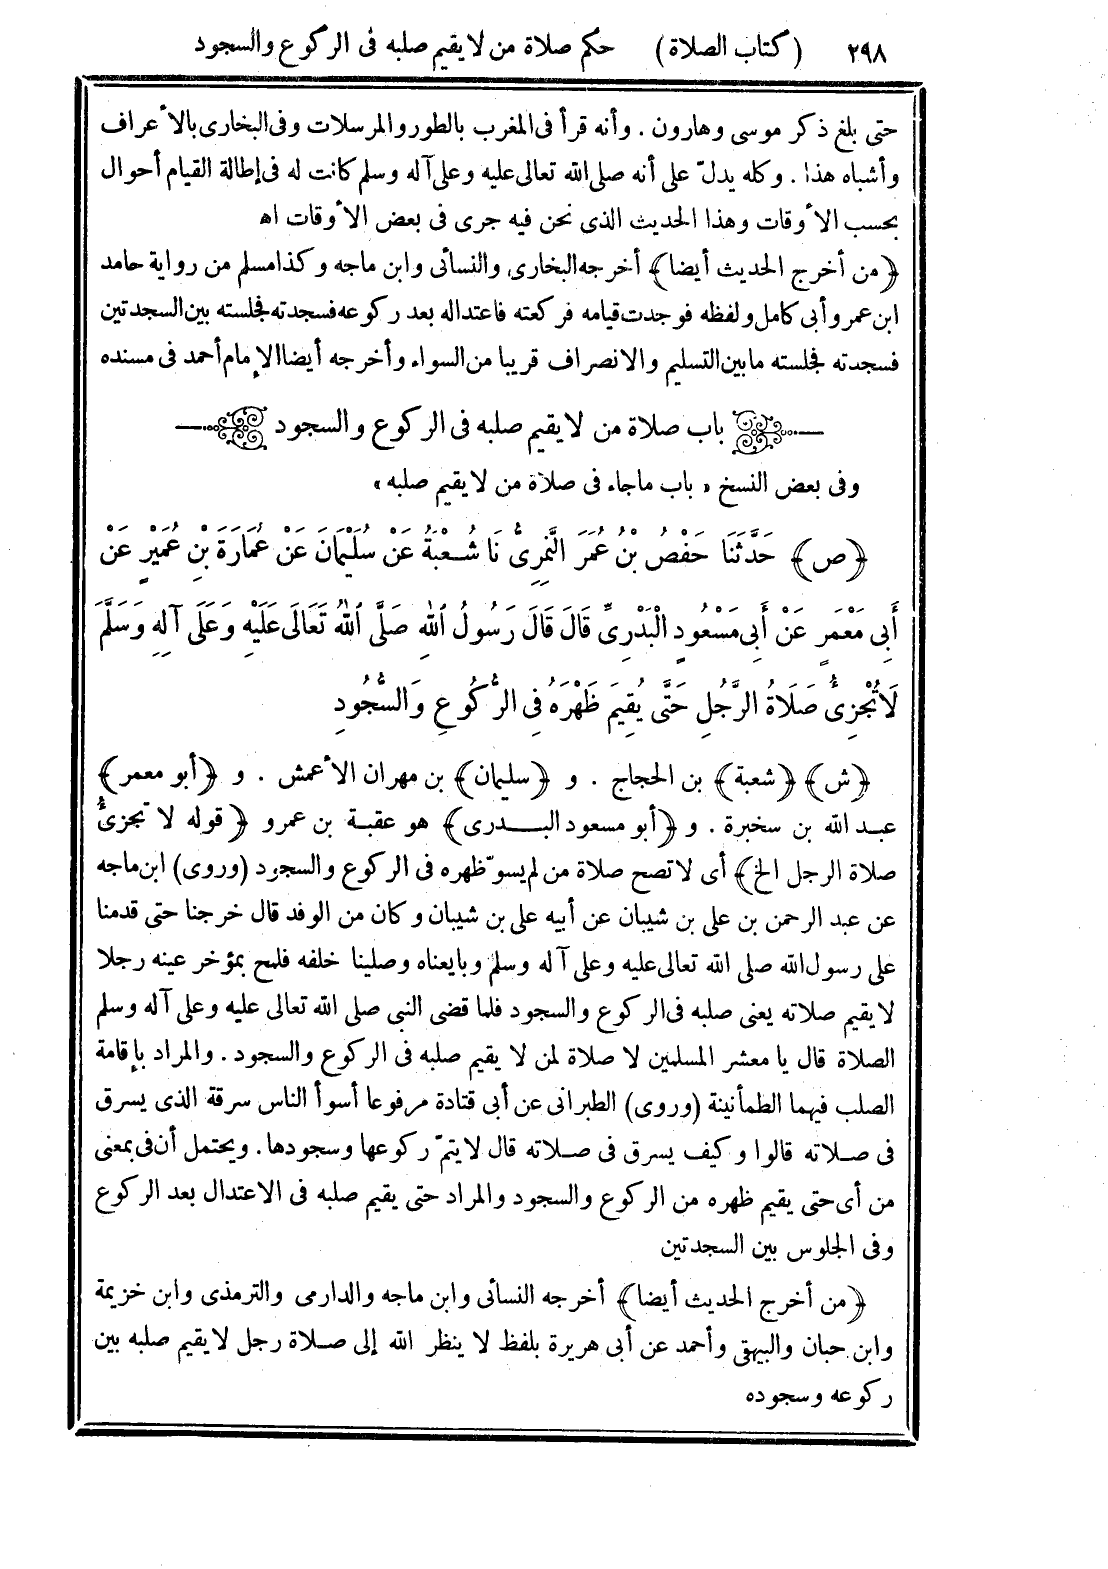 ٢٩٨ (كتاب الصلاة) حكم صلاة من لا يقيم صلبه فى الركوع والسجود
حتى بلغ ذكر موسى وهارون . وأنه قرأ فى المغرب بالطور والمرسلات وفى البخارى بالأعراف
وأشباه هذا . وكله يدلّ على أنه صلى الله تعالى عليه وعلى آله وسلم كانت له فى إطالة القيام أحوال
بحسب الأوقات وهذا الحديث الذى نحن فيه جرى فى بعض الأوقات اه
﴿من أخرج الحديث أيضا﴾ أخرجه البخارى والنسائى وابن ماجه وكذا مسلم من رواية حامد
ابن عمر وأبى كامل ولفظه فوجدت قيامه فركعته فاعتداله بعد ركوعه فسجدته فجلسته بين السجدتين
فسجدته فجلسته ما بين التسليم والانصراف قريبا من السواء وأخرجه أيضا الإمام أحمد فى مسنده
باب صلاة من لا يقيم صلبه فى الركوع والسجود
وفى بعض النسخ «باب ماجاء فى صلاة من لا يقيم صلبه»
﴿ص﴾ حَدَّثَنَا حَفْصُ بْنُ عُمَرَ النَّمِرِىُّ نَا شُعْبَةُ عَنْ سُلَيْمَانَ عَنْ عُمَارَةَ بْنِ عُمَيْرٍ عَنْ
أَبِى مَعْمَرٍ عَنْ أَبِى مَسْعُودٍ الْبَدْرِىِّ قَالَ قَالَ رَسُولُ اللهِ صَلَّى اللهُ تَعَالَى عَلَيْهِ وَعَلَى آلِهِ وَسَلَّمَ
لَا تُجْزِئُ صَلَاةُ الرَّجُلِ حَتَّى يُقِيمَ ظَهْرَهُ فِى الرُّكُوعِ وَالسُّجُودِ
﴿ش﴾ ﴿شعبة﴾ بن الحجاج . و ﴿سليمان﴾ بن مهران الأعمش . و ﴿أبو معمر﴾
عبد الله بن سخبرة . و ﴿أبو مسعود البدرى﴾ هو عقبة بن عمرو ﴿قوله لا تجزئُ
صلاة الرجل الخ﴾ أى لا تصح صلاة من لم يسوّ ظهره فى الركوع والسجود (وروى) ابن ماجه
عن عبد الرحمن بن على بن شيبان عن أبيه على بن شيبان وكان من الوفد قال خرجنا حتى قدمنا
على رسول الله صلى الله تعالى عليه وعلى آله وسلم وبايعناه وصلينا خلفه فلمح بمؤخر عينه رجلا
لا يقيم صلاته يعنى صلبه فى الركوع والسجود فلما قضى النبى صلى الله تعالى عليه وعلى آله وسلم
الصلاة قال يا معشر المسلمين لا صلاة لمن لا يقيم صلبه فى الركوع والسجود . والمراد بإقامة
الصلب فيهما الطمأنينة (وروى) الطبرانى عن أبى قتادة مرفوعا أسوأ الناس سرقة الذى يسرق
فى صلاته قالوا وكيف يسرق فى صلاته قال لا يتمّ ركوعها وسجودها . ويحتمل أن فى بمعنى
من أى حتى يقيم ظهره من الركوع والسجود والمراد حتى يقيم صلبه فى الاعتدال بعد الركوع
وفى الجلوس بين السجدتين
﴿من أخرج الحديث أيضا﴾ أخرجه النسائى وابن ماجه والدارمى والترمذى وابن خزيمة
وابن حبان والبيهقى وأحمد عن أبى هريرة بلفظ لا ينظر الله إلى صلاة رجل لا يقيم صلبه بين
ركوعه وسجوده